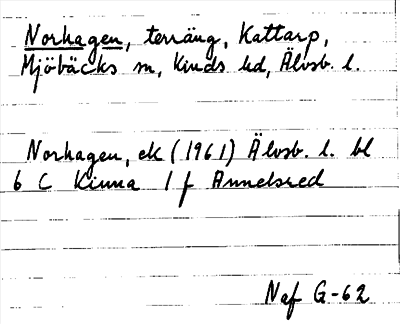 Norhagen, terräng, Kattarp,
Mjöbäcks sn, Kinds hd, Älvsb. l.
Norhagen, ek (1961) Älvsb. l. bl
6 C Kinna 1 f Annelsred
Naf G-62